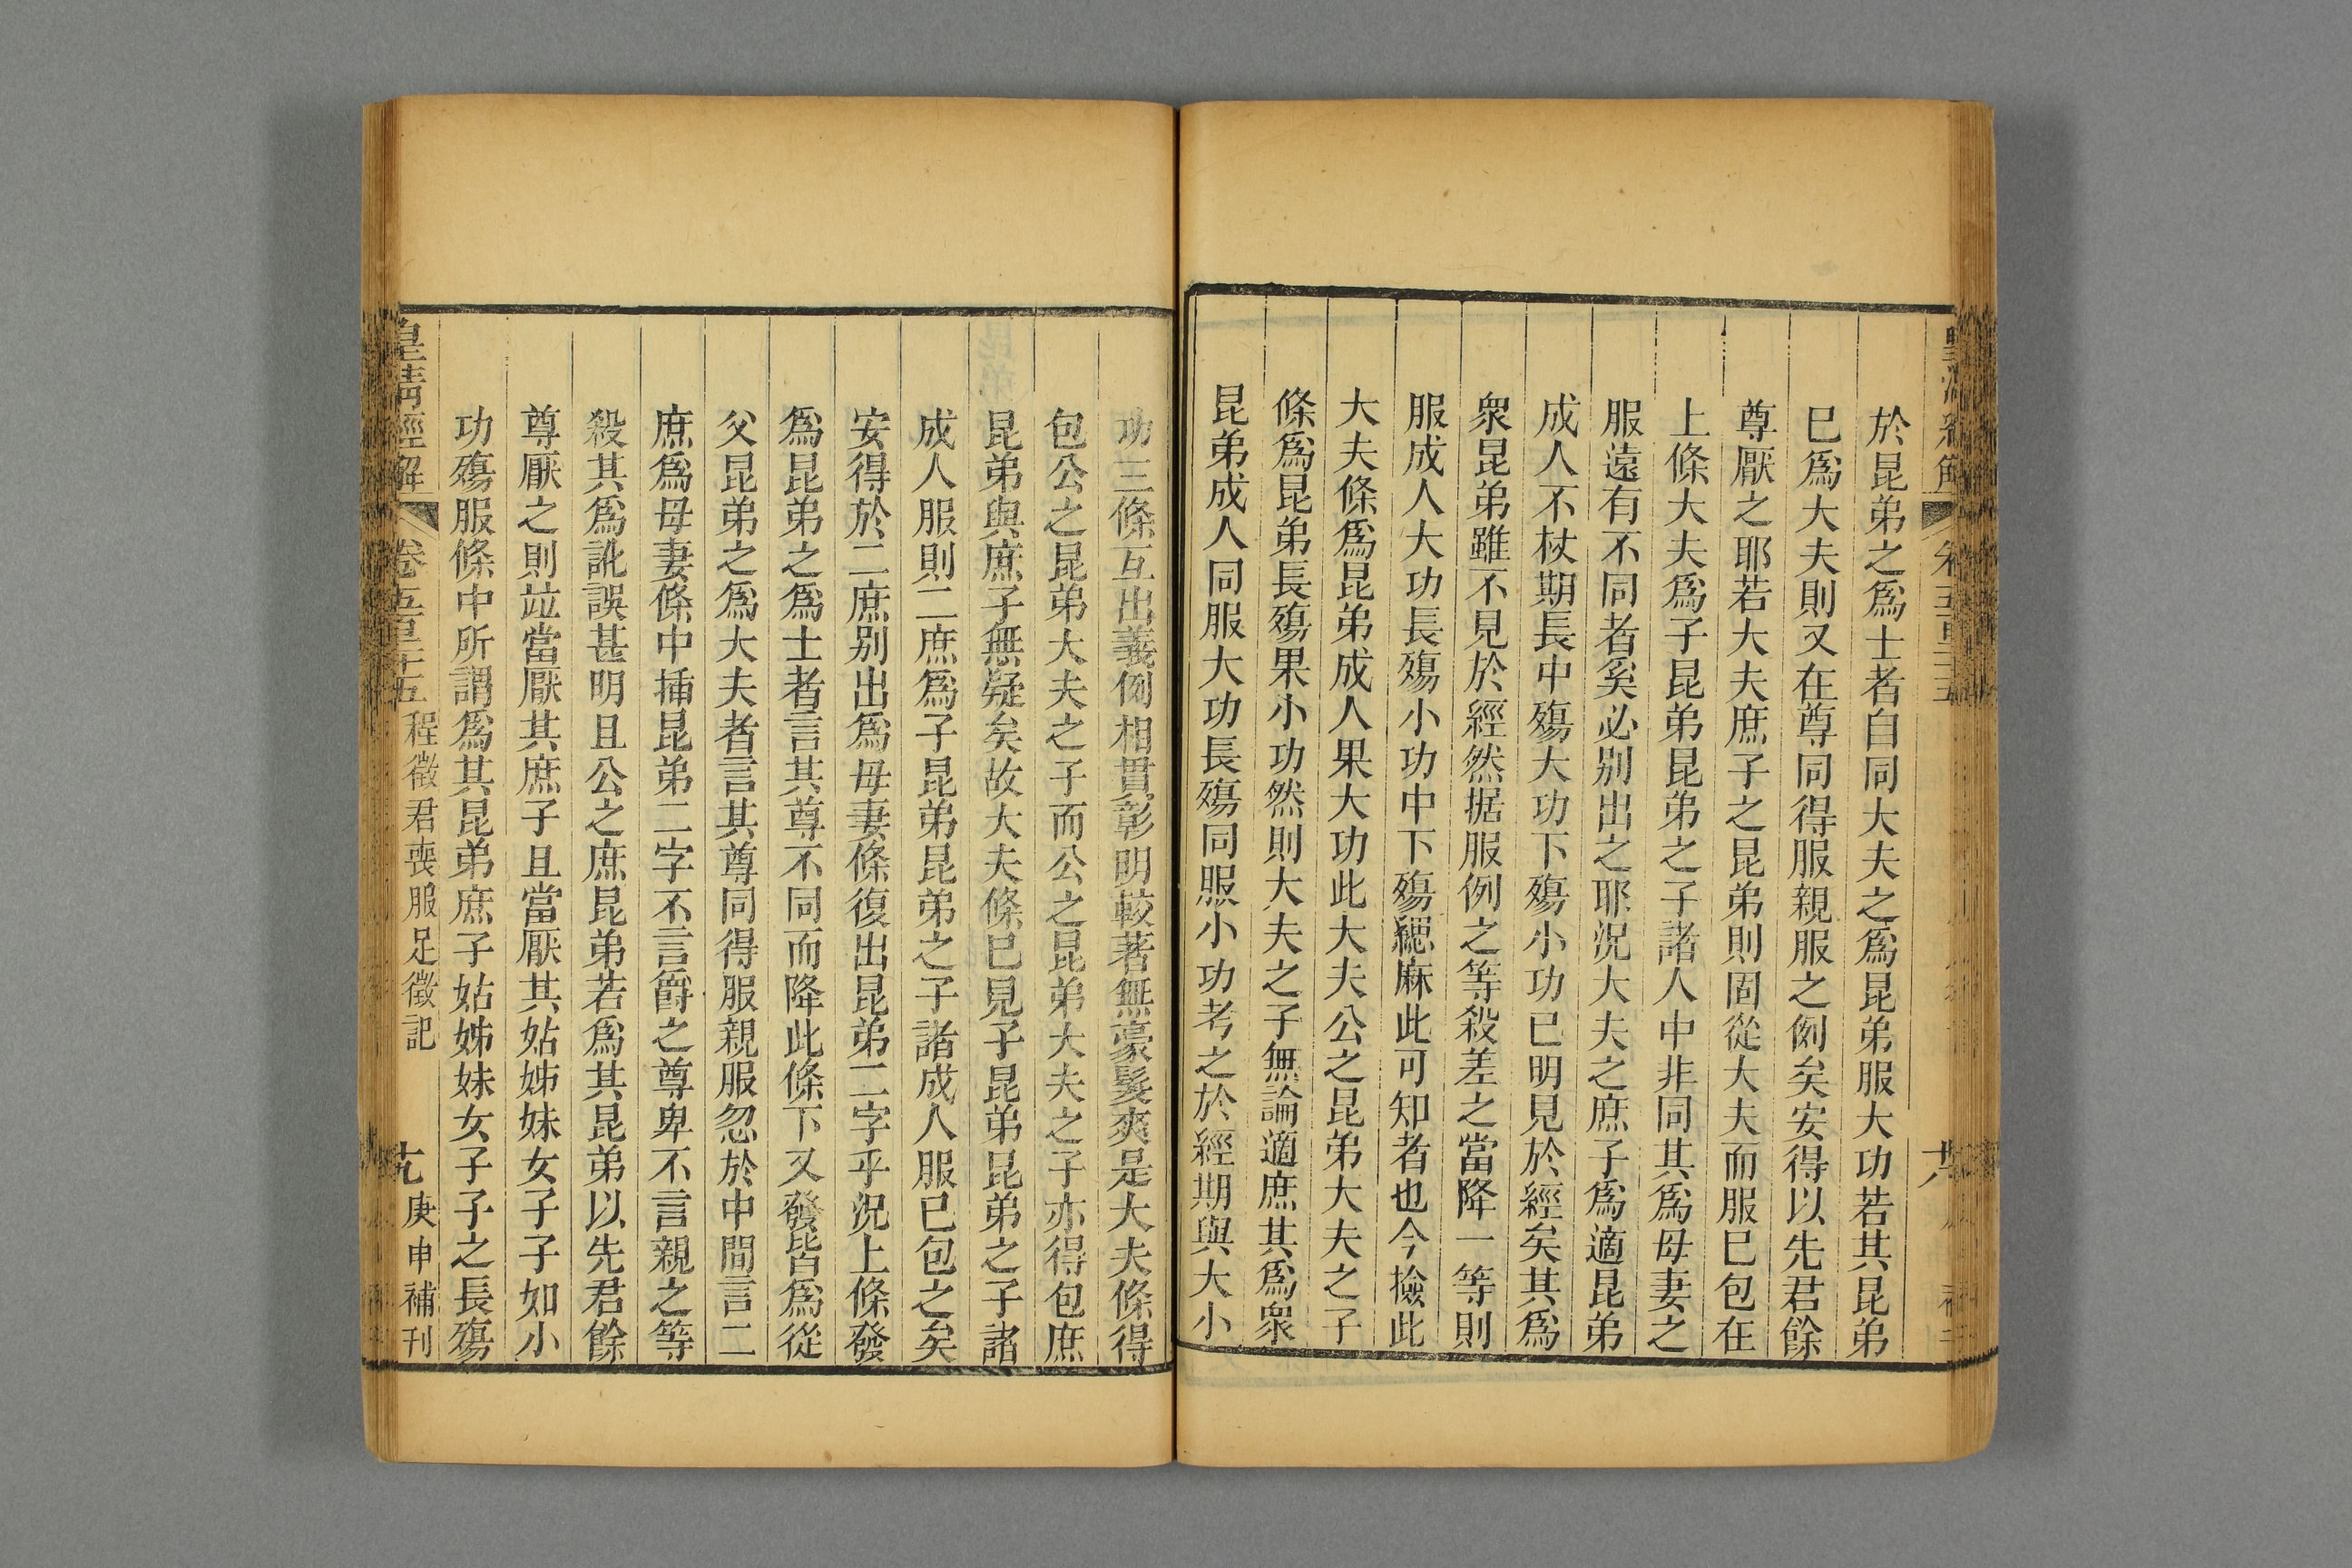 於昆弟之爲士者自同大夫之爲昆弟服大功若其昆弟
巳爲大夫則又在尊同得服親服之例矣安得以先君餘
尊厭之耶若大夫庶子之昆弟則固從大夫而服巳包在
上條大夫爲子昆弟昆弟之子諸人中非同其爲母妻之
服遠有不同者奚必别出之耶況大夫之庶子爲適昆弟
成人不杖期長中殤大功下殤小功巳明見於經矣其爲
衆昆弟雖不見於經然据服例之等殺差之當降一等則
服成人大功長殤小功中下殤緦麻此可知者也今撿此
大夫條爲昆弟成人果大功此大夫公之昆弟大夫之子
條爲昆弟長殤果小功然則大夫之子無論適庶其爲衆
昆弟成人同服大功長殤同服小功考之於經期與大小
功三條互出義例相貫彰明較著無豪髮爽是大夫條得
包公之昆弟大夫之子而公之昆弟大夫之子亦得包庶
昆弟與庶子無疑矣故大夫條巳見子昆弟昆弟之子諸
成人服則二庶爲子昆弟昆弟之子諸成人服巳包之矣
安得於二庶别出爲母妻條復出昆弟二字乎況上條發
爲昆弟之爲士者言其尊不同而降此條下又發皆爲從
父昆弟之爲大夫者言其尊同得服親服忽於中間言二
庶爲母妻條中插昆弟二字不言爵之尊卑不言親之等
殺其爲訛誤甚明且公之庶昆弟若爲其昆弟以先君餘
尊厭之則竝當厭其庶子且當厭其姑姊妹女子子如小
功殤服條中所謂爲其昆弟庶子姑姊妹女子子之長殤
皇清經解 卷五百三十五 程徵君喪服足徵記 十九 庚申補刊